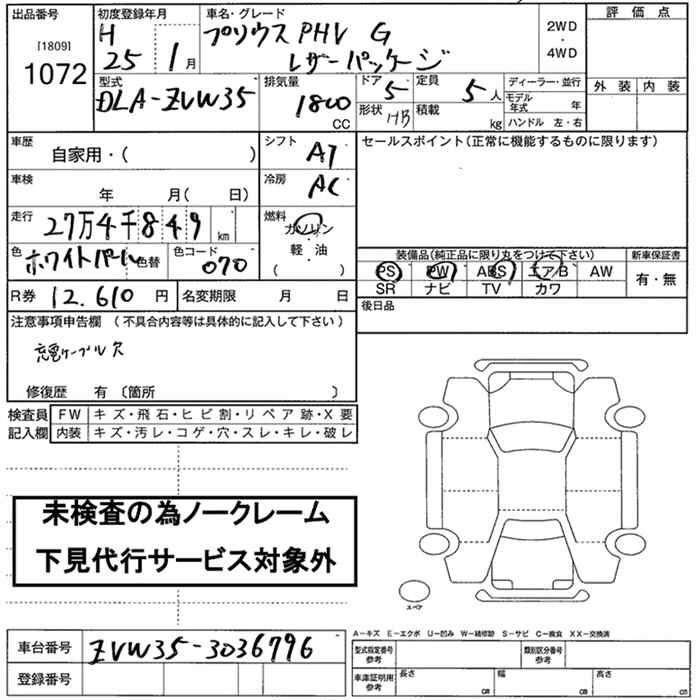 出品番号
[1809]
1072
初度登録年月
H 25 1月
車名・グレード
プリウスPHV G
レザーパッケージ
2WD
・
4WD
評価点
外装 内装
型式
DLA-ZVW35
排気量
1800
CC
ドア 5
定員 5人
形状 HB
積載 kg
ディーラー・並行
モデル年式 年
ハンドル 左・右
車歴
自家用・( )
シフト AT
セールスポイント(正常に機能するものに限ります)
車検
年 月( 日)
冷房 AC
走行
27万4千849 km
燃料
ガソリン
軽・油
( )
色 ホワイトパール 色替
色コード 070
装備品(純正品に限り丸をつけて下さい)
新車保証書
PS PW ABS エア/B AW
有・無
SR ナビ TV カワ
R券 12.610 円
名変期限 月 日
後日品
注意事項申告欄 (不具合内容等は具体的に記入して下さい)
充電ケーブル欠
修復歴 有 〔箇所 〕
検査員 FW キズ・飛石・ヒビ割・リペア跡・X要
記入欄 内装 キズ・汚レ・コゲ・穴・スレ・キレ・破レ
未検査の為ノークレーム
下見代行サービス対象外
スペア
A-キズ E-エクボ U-凹み W-補修跡 S-サビ C-腐食 XX-交換済
車台番号 ZVW35-3036796
型式指定番号 参考
類別区分番号 参考
登録番号
車庫証明用 参考
長さ cm
幅 cm
高さ cm